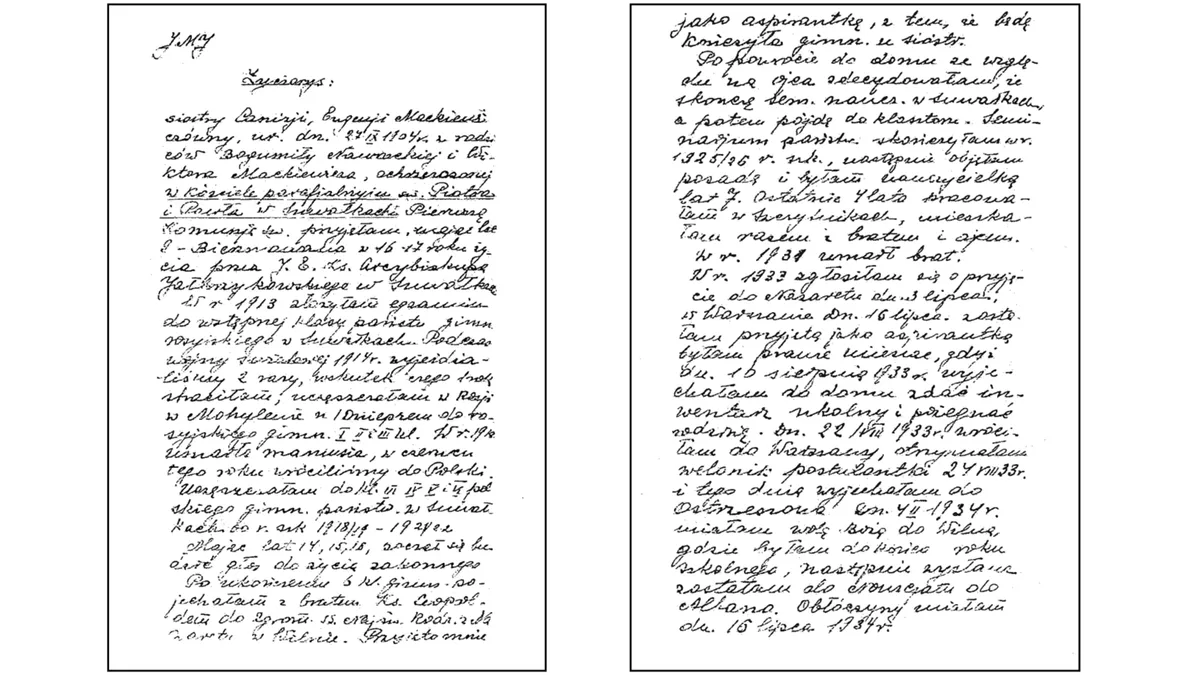 JMJ
Życiorys:
siostry Canizji, Eugenji Mackiewi
czówny, ur. dn. 27 IX 1904 r. z rodzi
ców Bogumiły Nawrockiej i Wi-
ktora Mackiewicza, ochrzczonej
w kościele parafialnym św. Piotra
i Pawła w Suwałkach Pierwszą
Komunję św. przyjęłam, mając lat
9 - Bierzmowania w 16-17 roku ży-
cia przez J. E. Ks. Arcybiskupa
Jałbrzykowskiego w Suwałkac
W r 1913 złożyłam egzamin
do wstępnej klasy państw gimn
rosyjskiego w Suwałkach. Podczas
wojny światowej 1914 r. wyjeżdża-
liśmy 2 razy, wskutek czego 1 rok
straciłam, uczęszczałam w Rosji
w Mohylewie n/Dnieprem do ro-
syjskiego gimn. I II i III kl. W r.
umarła mamusia, w czerwcu
tego roku wróciliśmy do Polski.
Uczęszczałam do kl. III IV V i VI pol
skiego gimn. państw. w Suwał
kach do r. szk 1918/19 - 1921/22
Mając lat 14, 15, 16, zaczął się bu
dzić głos do życia zakonnego
Po ukończeniu 6 kl. gimn. po-
jechałam z bratem Ks. Leopol-
dem do Zgrom. SS. Najśw. Rodz. z Na
zaretu w Wilnie. Przyjęto mnie
jako aspirantkę, z tem, że będę
kończyła gimn. u sióstr.
Po powrocie do domu ze wzglę-
du na ojca zdecydowałam, że
skończę sem. naucz. w Suwałkach,
a potem pójdę do klasztoru. Semi-
narjum państw. skończyłam w r.
1925/26 r. szk., następnie objęłam
posadę i byłam nauczycielką
lat 7. Ostatnie 4 lata pracowa-
łam w, mieszka-
łam razem z bratem i ojcem.
W r. 1931 umarł brat.
W r. 1933 zgłosiłam się o przyję-
cie do Nazaretu dn. 3 lipca,
w Warszawie Dn. 16 lipca. zosta
łam przyjętą jako aspirantką
byłam prawie miesiąc, gdyż
dn. 10 sierpnia 1933 r. wyje-
chałam do domu zdać in-
wentarz szkolny i pożegnać
rodzinę. Dn. 22/VIII 1933 r. wróci-
łam do Warszawy, otrzymałam
welonik postulantki 24 VIII 33 r.
i tego dnia wyjechałam do
Ostrzeszowa dn. 4 II 1934 r.
miałam wolę Bożą do Wilna,
gdzie byłam do końca roku
szkolnego, następnie
zostałam do Nowicjatu do
Albano. Obłóczyny miałam
dn. 16 lipca 1934 r.